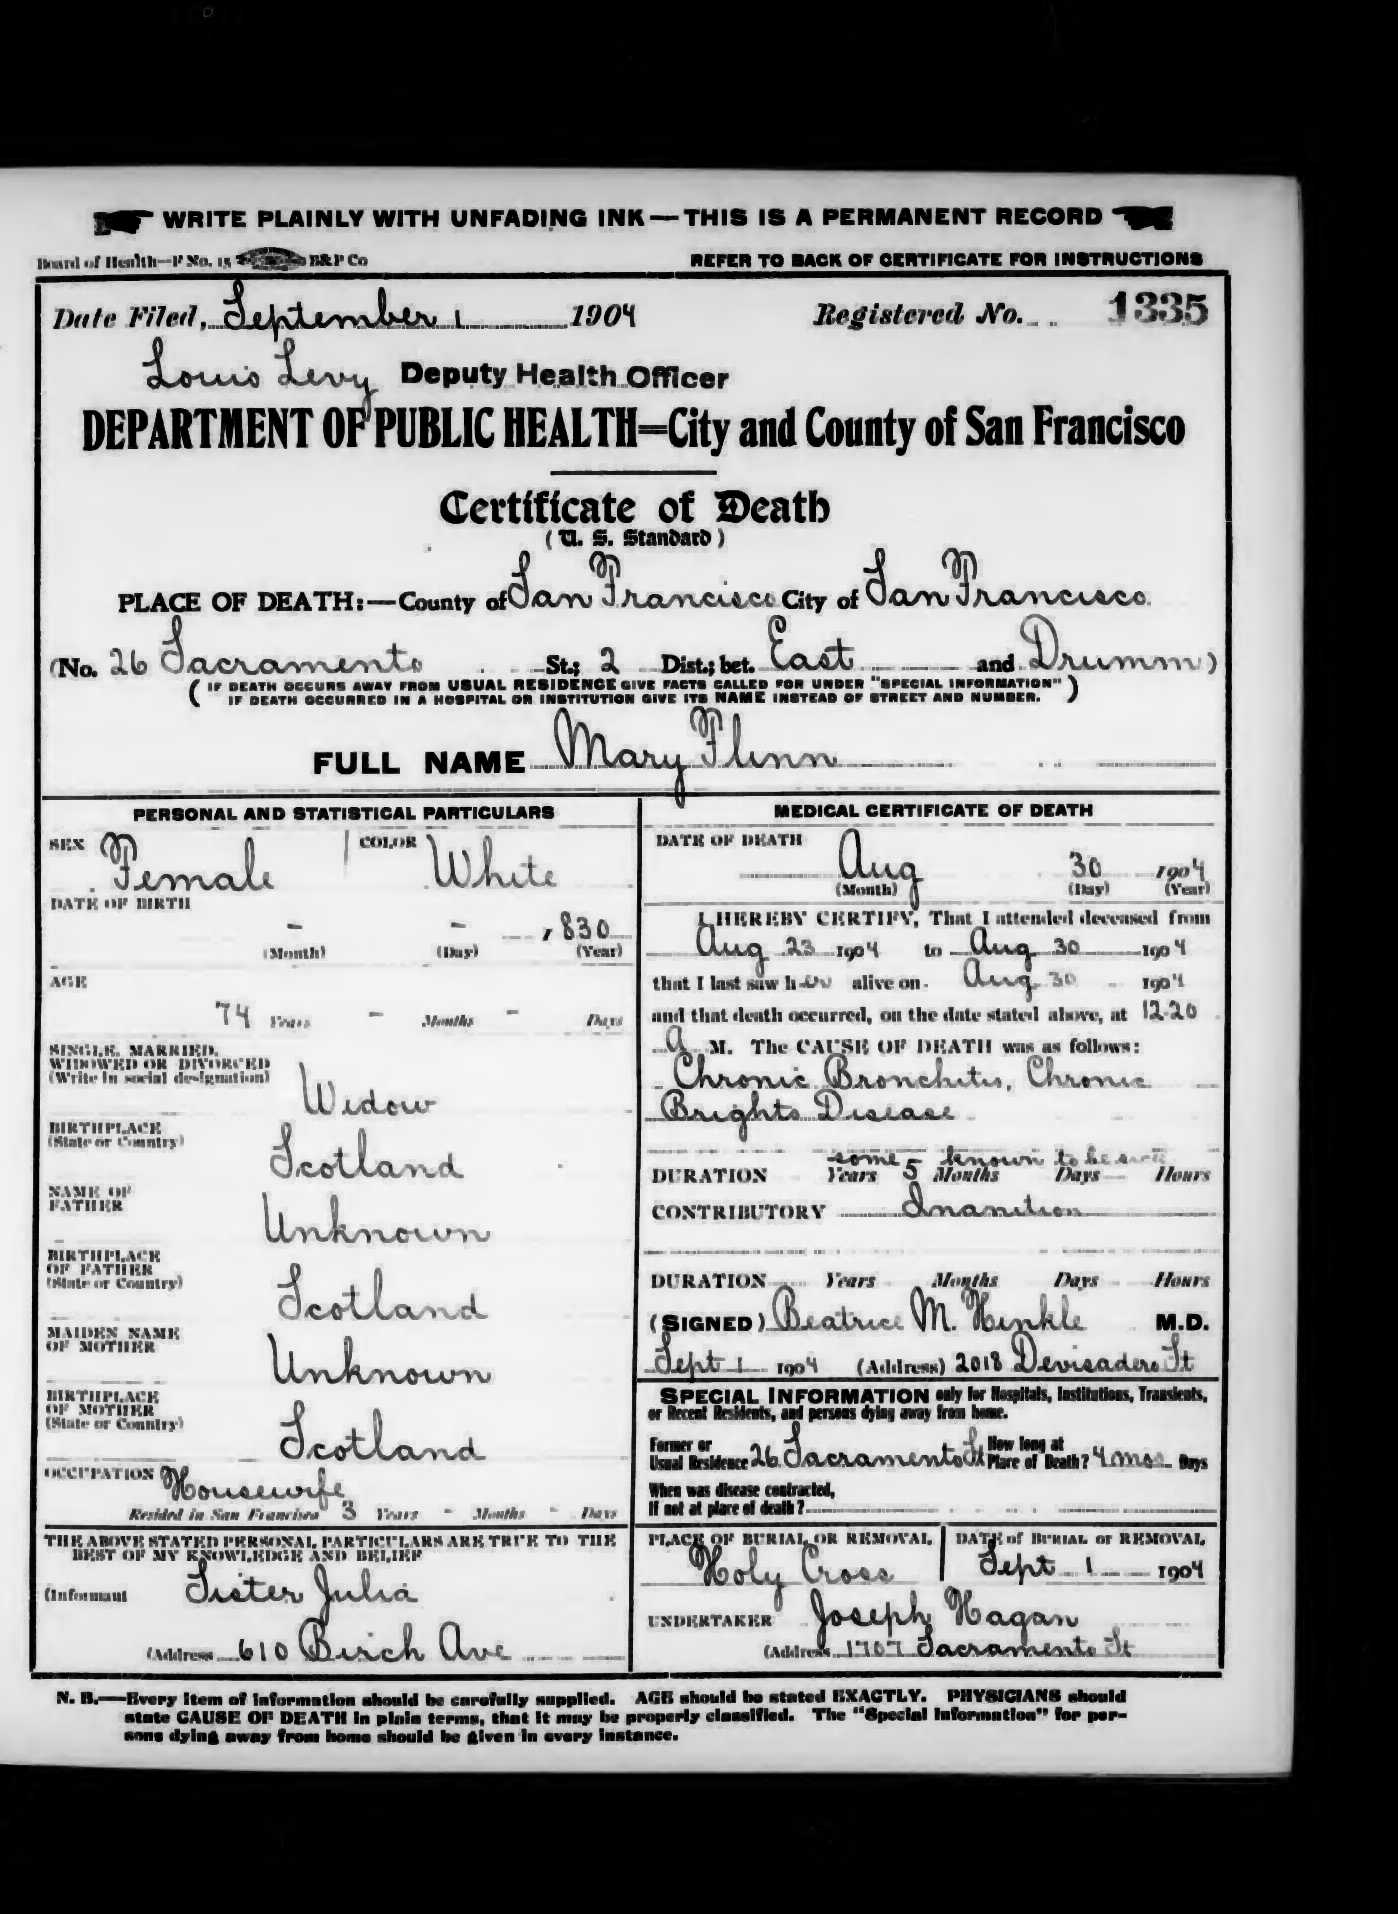 WRITE PLAINLY WITH UNFADING INK — THIS IS A PERMANENT RECORD
Board of Health—F No. 15 B&P Co REFER TO BACK OF CERTIFICATE FOR INSTRUCTIONS
Date Filed, September 1 1904 Registered No. 1335
Louis Levy Deputy Health Officer
DEPARTMENT OF PUBLIC HEALTH=City and County of San Francisco
Certificate of Death
(U. S. Standard)
PLACE OF DEATH:—County of San Francisco City of San Francisco
(No. 26 Sacramento St.; 2 Dist.; bet. East and Drumm)
(IF DEATH OCCURS AWAY FROM USUAL RESIDENCE GIVE FACTS CALLED FOR UNDER "SPECIAL INFORMATION"
IF DEATH OCCURRED IN A HOSPITAL OR INSTITUTION GIVE ITS NAME INSTEAD OF STREET AND NUMBER.)
FULL NAME Mary Flinn
PERSONAL AND STATISTICAL PARTICULARS
SEX Female COLOR White
DATE OF BIRTH
- - , 830
(Month) (Day) (Year)
AGE
74 Years - Months - Days
SINGLE, MARRIED,
WIDOWED OR DIVORCED
(Write in social designation)
Widow
BIRTHPLACE
(State or Country)
Scotland
NAME OF
FATHER
Unknown
BIRTHPLACE
OF FATHER
(State or Country)
Scotland
MAIDEN NAME
OF MOTHER
Unknown
BIRTHPLACE
OF MOTHER
(State or Country)
Scotland
OCCUPATION Housewife
Resided in San Francisco 3 Years - Months - Days
THE ABOVE STATED PERSONAL PARTICULARS ARE TRUE TO THE
BEST OF MY KNOWLEDGE AND BELIEF
(Informant Sister Julia
(Address 610 Birch Ave
MEDICAL CERTIFICATE OF DEATH
DATE OF DEATH
Aug 30 1904
(Month) (Day) (Year)
I HEREBY CERTIFY, That I attended deceased from
Aug 23 1904 to Aug 30 1904
that I last saw her alive on Aug 30 1904
and that death occurred, on the date stated above, at 12.20
A M. The CAUSE OF DEATH was as follows:
Chronic Bronchitis, Chronic
Brights Disease
some known to be sick
DURATION Years 5 Months Days Hours
CONTRIBUTORY Inanition
DURATION Years Months Days Hours
(SIGNED) Beatrice M. Hinkle M.D.
Sept 1 1904 (Address) 2018 Devisadero St
SPECIAL INFORMATION only for Hospitals, Institutions, Transients,
or Recent Residents, and persons dying away from home.
Former or
Usual Residence 26 Sacramento St How long at
Place of Death? 4 mos Days
When was disease contracted,
If not at place of death?
PLACE OF BURIAL OR REMOVAL DATE of BURIAL or REMOVAL
Holy Cross Sept 1 1904
UNDERTAKER Joseph Hagan
(Address 1707 Sacramento St
N. B.—Every item of information should be carefully supplied. AGE should be stated EXACTLY. PHYSICIANS should
state CAUSE OF DEATH in plain terms, that it may be properly classified. The "Special Information" for per-
sons dying away from home should be given in every instance.